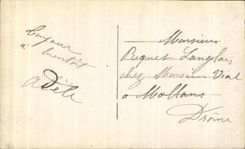 Bonjour
à bientôt
Adèle
Monsieur
Paquet Langlois
chez Monsieur Vial
à Mollans
Drôme